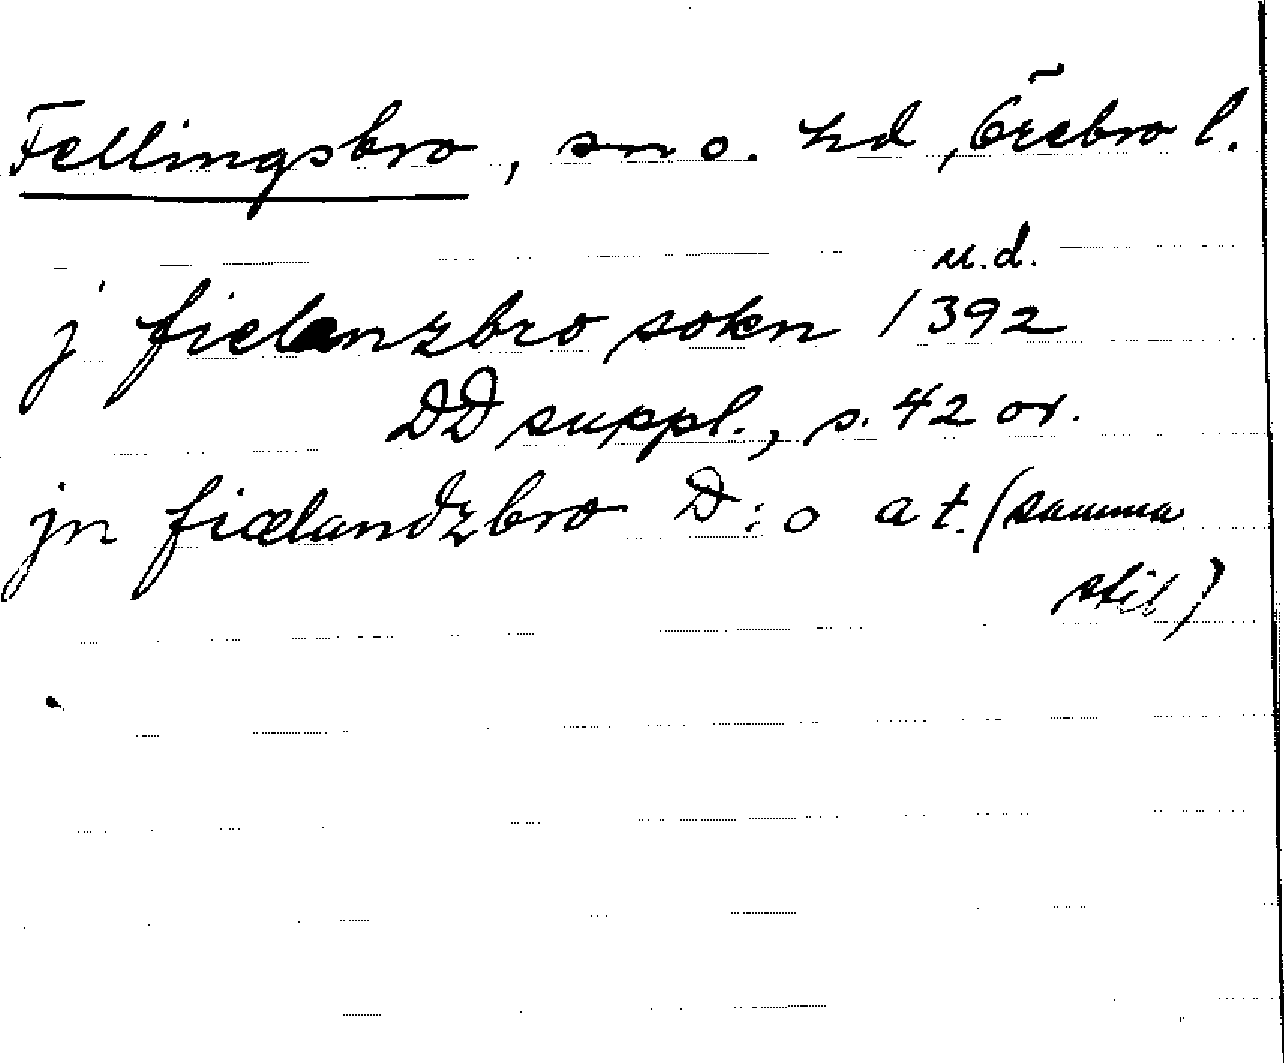 Fellingsbro, sn o. hd, Örebro l.
u.d.
j fielanzbro sokn 1392
DD suppl., s. 42 or.
jn fiælandzbro D:o a t. (samma
stil)